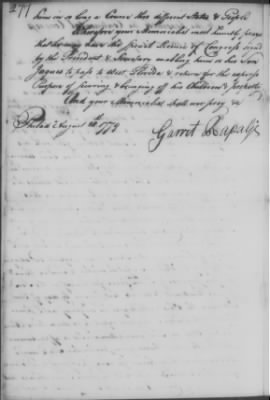 277
him in so long a Course thro different States & People
Wherefore your Memorialist most humbly prays
that he may have the permit License of Congress signed
by the President & Secretary enabling him or his Son
Jaques to pass to West Florida & return for the express
Purpose of securing & bringing off his Children & property
And your Memorialist shall ever pray &c
Philada August 1779
Garret Rapalje